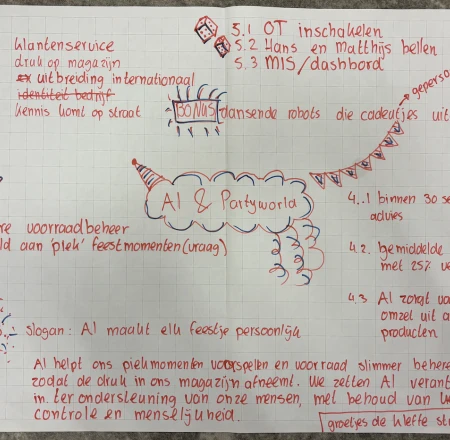 5.1 OT inschakelen
5.2 Hans en Matthijs bellen
5.3 MIS/dashbord
klantenservice
druk op magazijn
uitbreiding internationaal
identiteit bedrijf
kennis komt op straat
BONUS dansende robots die cadeautjes uit
AI & Partyworld
4.1 binnen 30 se
advies
4.2. gemiddelde
met 25%
4.3 AI zorgt
omzet uit
producten
re voorraadbeheer
ld aan 'piek' feestmomenten (vraag)
slogan: AI maakt elk feestje persoonlijk
AI helpt ons piekmomenten voorspellen en voorraad slimmer behere
zodat de druk in ons magazijn afneemt. We zetten AI verant
in. ter ondersteuning van onze mensen, met behoud van
controle en menselijkheid.
groetjes de kleffe